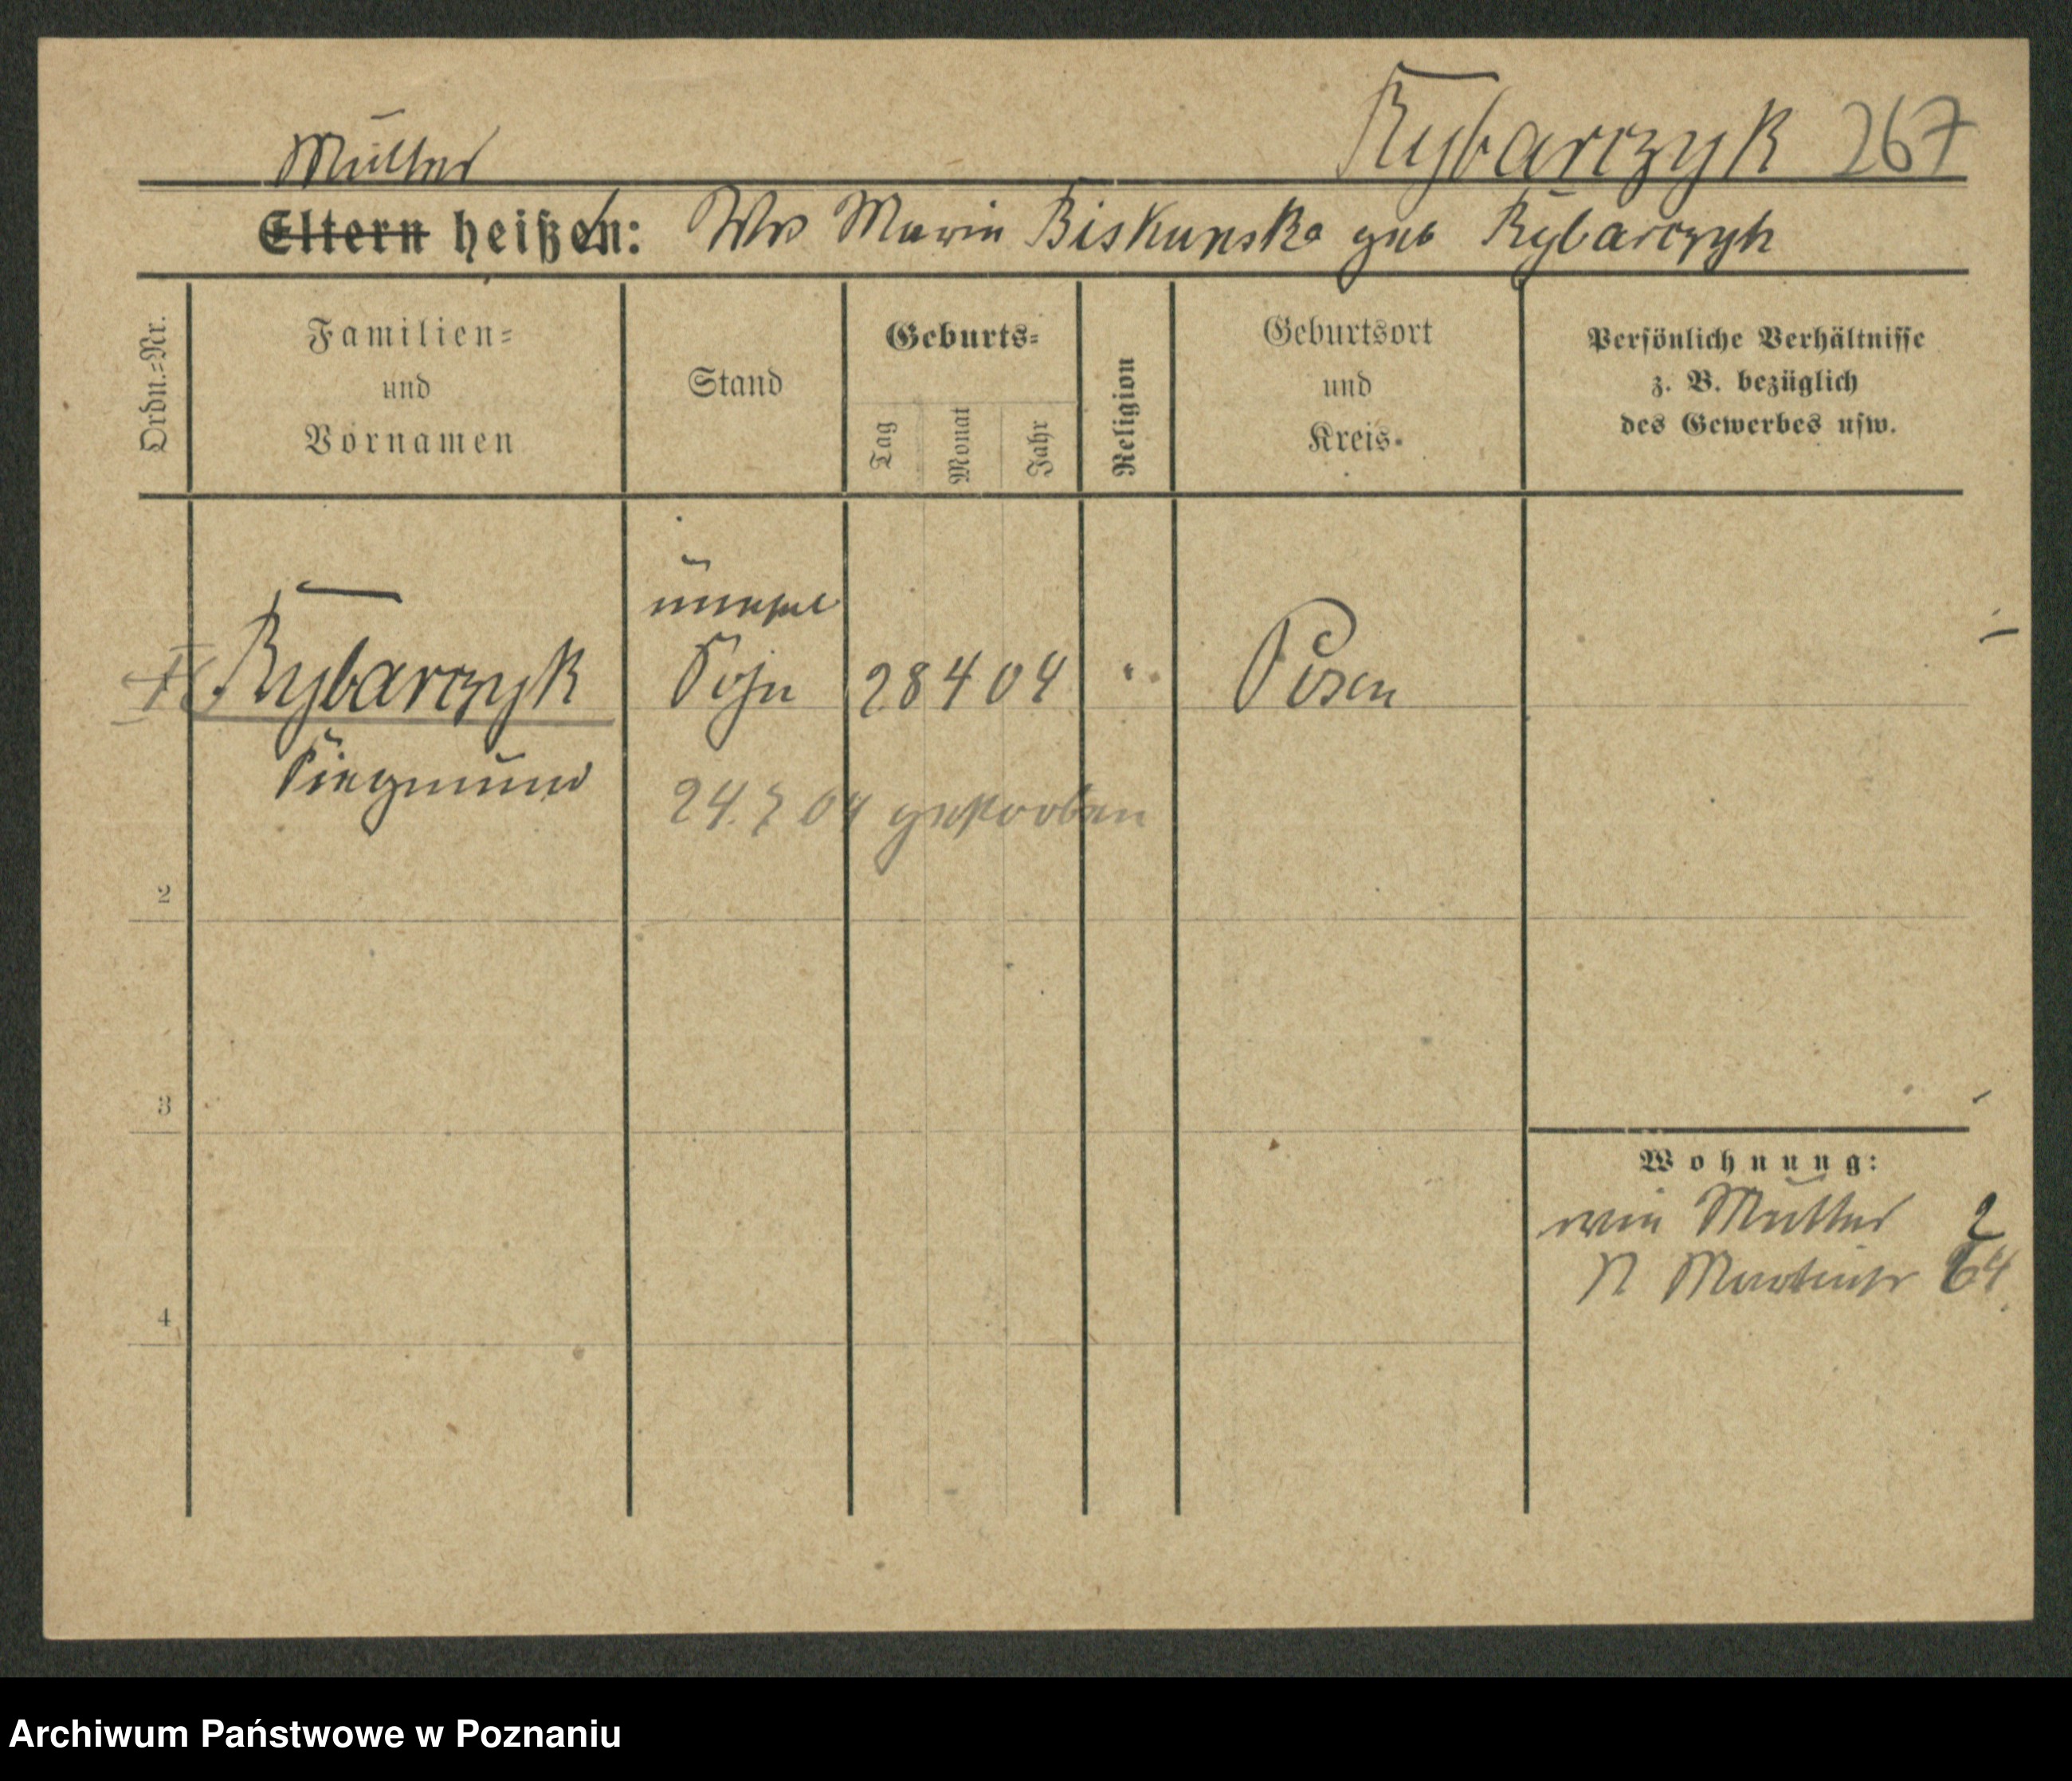 Rybarczyk 267
Mutter
Eltern heißen: Ww Marie Biskupska geb Rybarczyk
Ordn.-Nr.
Familien-
und
Vornamen
Stand
Geburts-
Tag
Monat
Jahr
Religion
Geburtsort
und
Kreis-
Persönliche Verhältnisse
z. B. bezüglich
des Gewerbes usw.
unehel
Rybarczyk Sohn 28 4 04 Posen
Siegmund
24.7 04 gestorben
2
3
4
Wohnung:
wie Mutter 2
N Martinstr 64
Archiwum Państwowe w Poznaniu